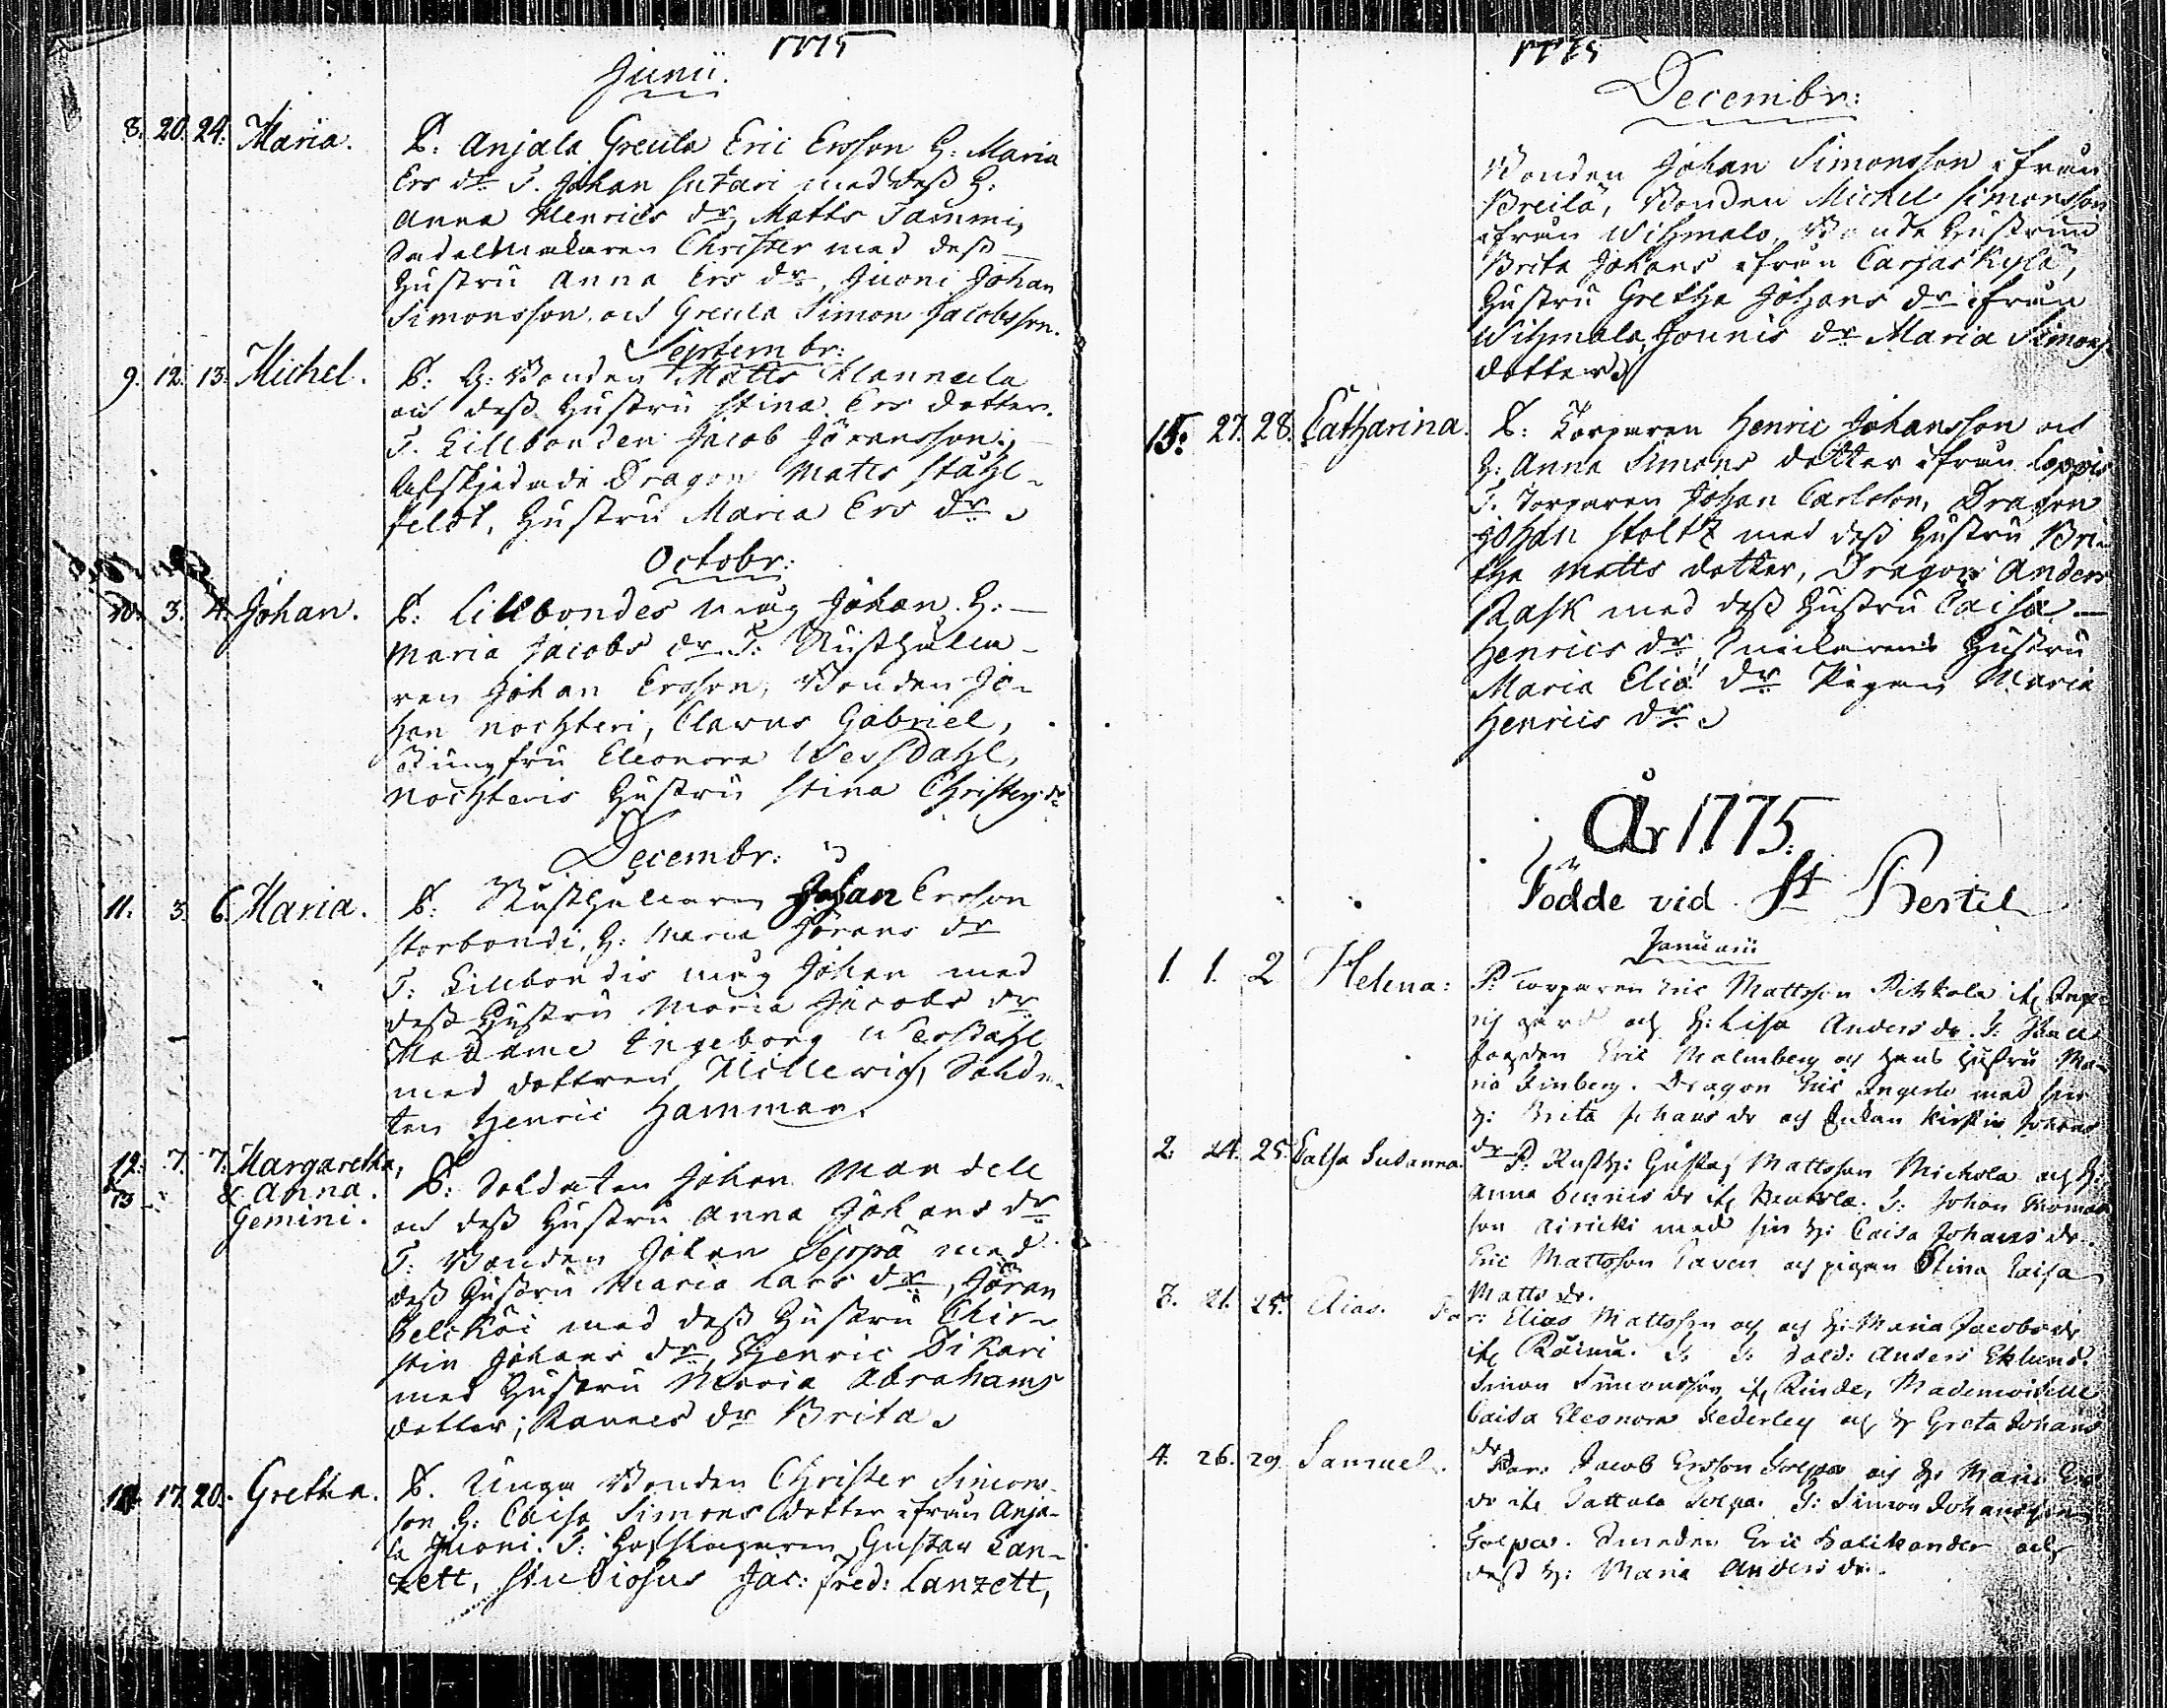 1775
Junii.
8. 20. 24. Maria. F: Anjala Greula Eric Ersson H: Maria
Ers dr T. Johan Sutari med dess H:
Anna Henrics dr, Matts Tammi,
Sadelmakaren Christer med dess
Hustru Anna Ers dr, Juoni Johan
Simonsson och Greula Simon Jacobsson.
Septembr:
9. 12. 13. Michel. F: H: Bonden Matts Mannula
och dess Hustru Stina Ers dotter.
T. Lillbonden Jacob Jöransson,
Afskjedade Dragon Matts Ståhl-
feldt, Hustru Maria Ers dr
Octobr:
10. 3. 4. Johan. F: Lillbondes måg Johan. H:
Maria Jacobs dr T: Rusthålla-
ren Johan Ersson, Bonden Jo-
han Nochteri, Clavus Gabriel,
Jungfru Eleonora Wessdahl,
Nochteris Hustru Stina Christers dr
Decembr:
11. 3. 6. Maria. F: Rusthållaren Johan Ersson
Storbondi, H: Maria Jörans dr
T: Lillbondis måg Johan med
dess Hustru Maria Jacobs dr
Madame Ingeborg Wessdahl
med dottren, Solda-
ten Henric Hammar.
12. 7. 7. Margaretha,
& 13 & Anna.
Gemini. F: Soldaten Johan Mandell
och dess Hustru Anna Johans dr
T: Bonden Johan Seppä med
dess Hustru Maria Lars dr, Jöran
med dess Hustru Chir-
stin Johans dr, Henric Dikari
med Hustru Maria Abrahams
dotter; dr Brita
14. 17. 20. Gretha. F. Unga Bonden Christer Simons-
son H: Caisa Simons dotter ifrån Anja-
la Juoni. T: Gustav Lan-
zett, Studiosus Jac: Fred: Lanzett,
1775
Decembr:
Bonden Johan Simonsson ifrån
Breilä, Bonden Michel Simonsson
ifrån Wihmalo, Bonde Hustrun
Brita Johans ifrån Carjaskylä,
Hustru Gretha Johans dr ifrån
Wihmalo, Jounis dr Maria Simons
dotter
15. 27. 28. Catharina. F: Torparen Henric Johansson och
H: Anna Simons dotter ifrån
T. Torparen Johan Carlsson, Dragon
Johan Stoltz med dess Hustru Bri-
tha Matts dotter, Dragon Anders
Rask med dess Hustru Caisa
Henrics dr, Hustru
Maria Eliæ dr Pigan Maria
Henrics dr
År 1775.
Födde vid St Bertil
Januarii
1. 1. 2 Helena: F: Torparen Eric Mattsson Pihkala
gård och H: Lisa Anders dr. T:
Eric Malmberg och hans hustru Ma-
ria Finberg. Dragon Eric Ingerlo med sin
H: Brita Johans dr och Enkan Kirstin Johans
dr
2. 24. 25. Caisa Susanna. F. Rusth: Gustaf Mattsson Michola och H:
Anna dr T: Johan Thomas
son Airicki med sin H: Caisa Johans dr.
Eric Mattsson Caven och pigan Stina Caisa
Matts dr.
3. 21. 25. Elias. Far: Elias Mattsson och och H: Maria Jacobs dr
T: T: Sold: Anders Eklund.
Simon Simonsson Rinde, Mademoiselle
Caisa Eleonora Federley och H Greta Johans
dr
4. 26. 29 Samuel. Far: Jacob Ersson Solpa och H: Maria Ers
dr Tattala Solpa. T: Simon Johansson
Solpa. Smeden Eric Galikander och
dess H: Maria Anders dr.